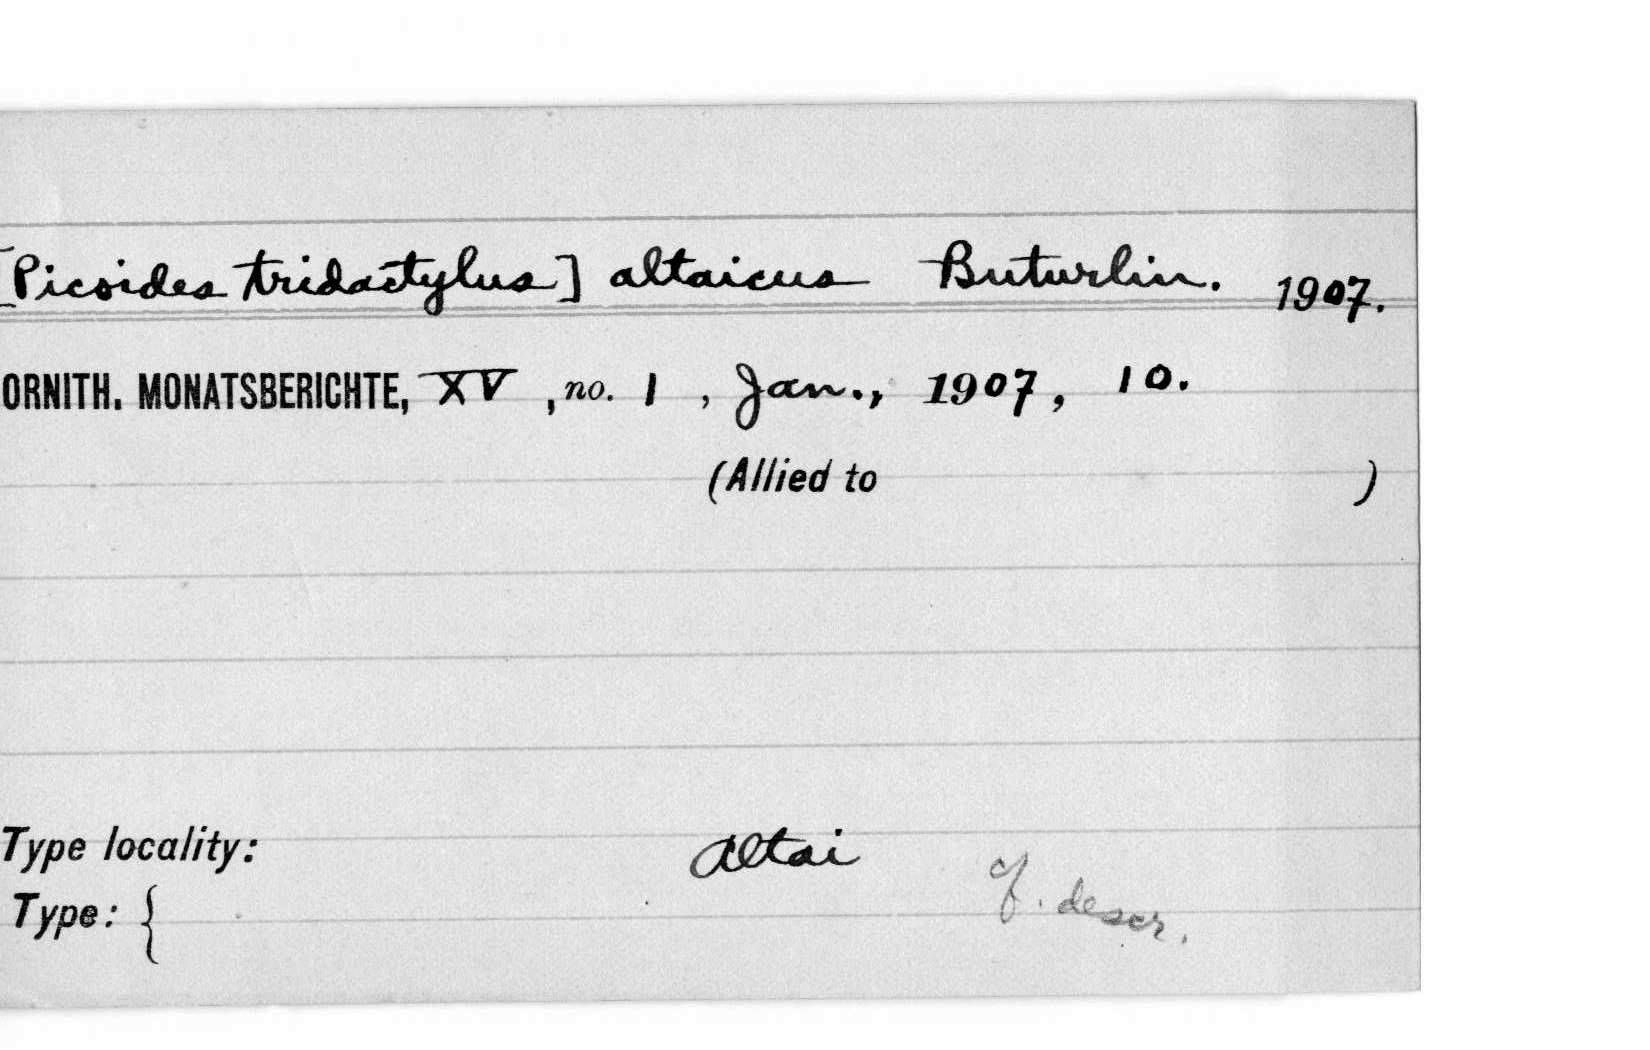 [Picoides tridactylus] altaicus Buturlin. 1907.
ORNITH. MONATSBERICHTE, XV, no. 1, Jan., 1907, 10.
(Allied to )
Type locality: Altai
cf. descr.
Type: {